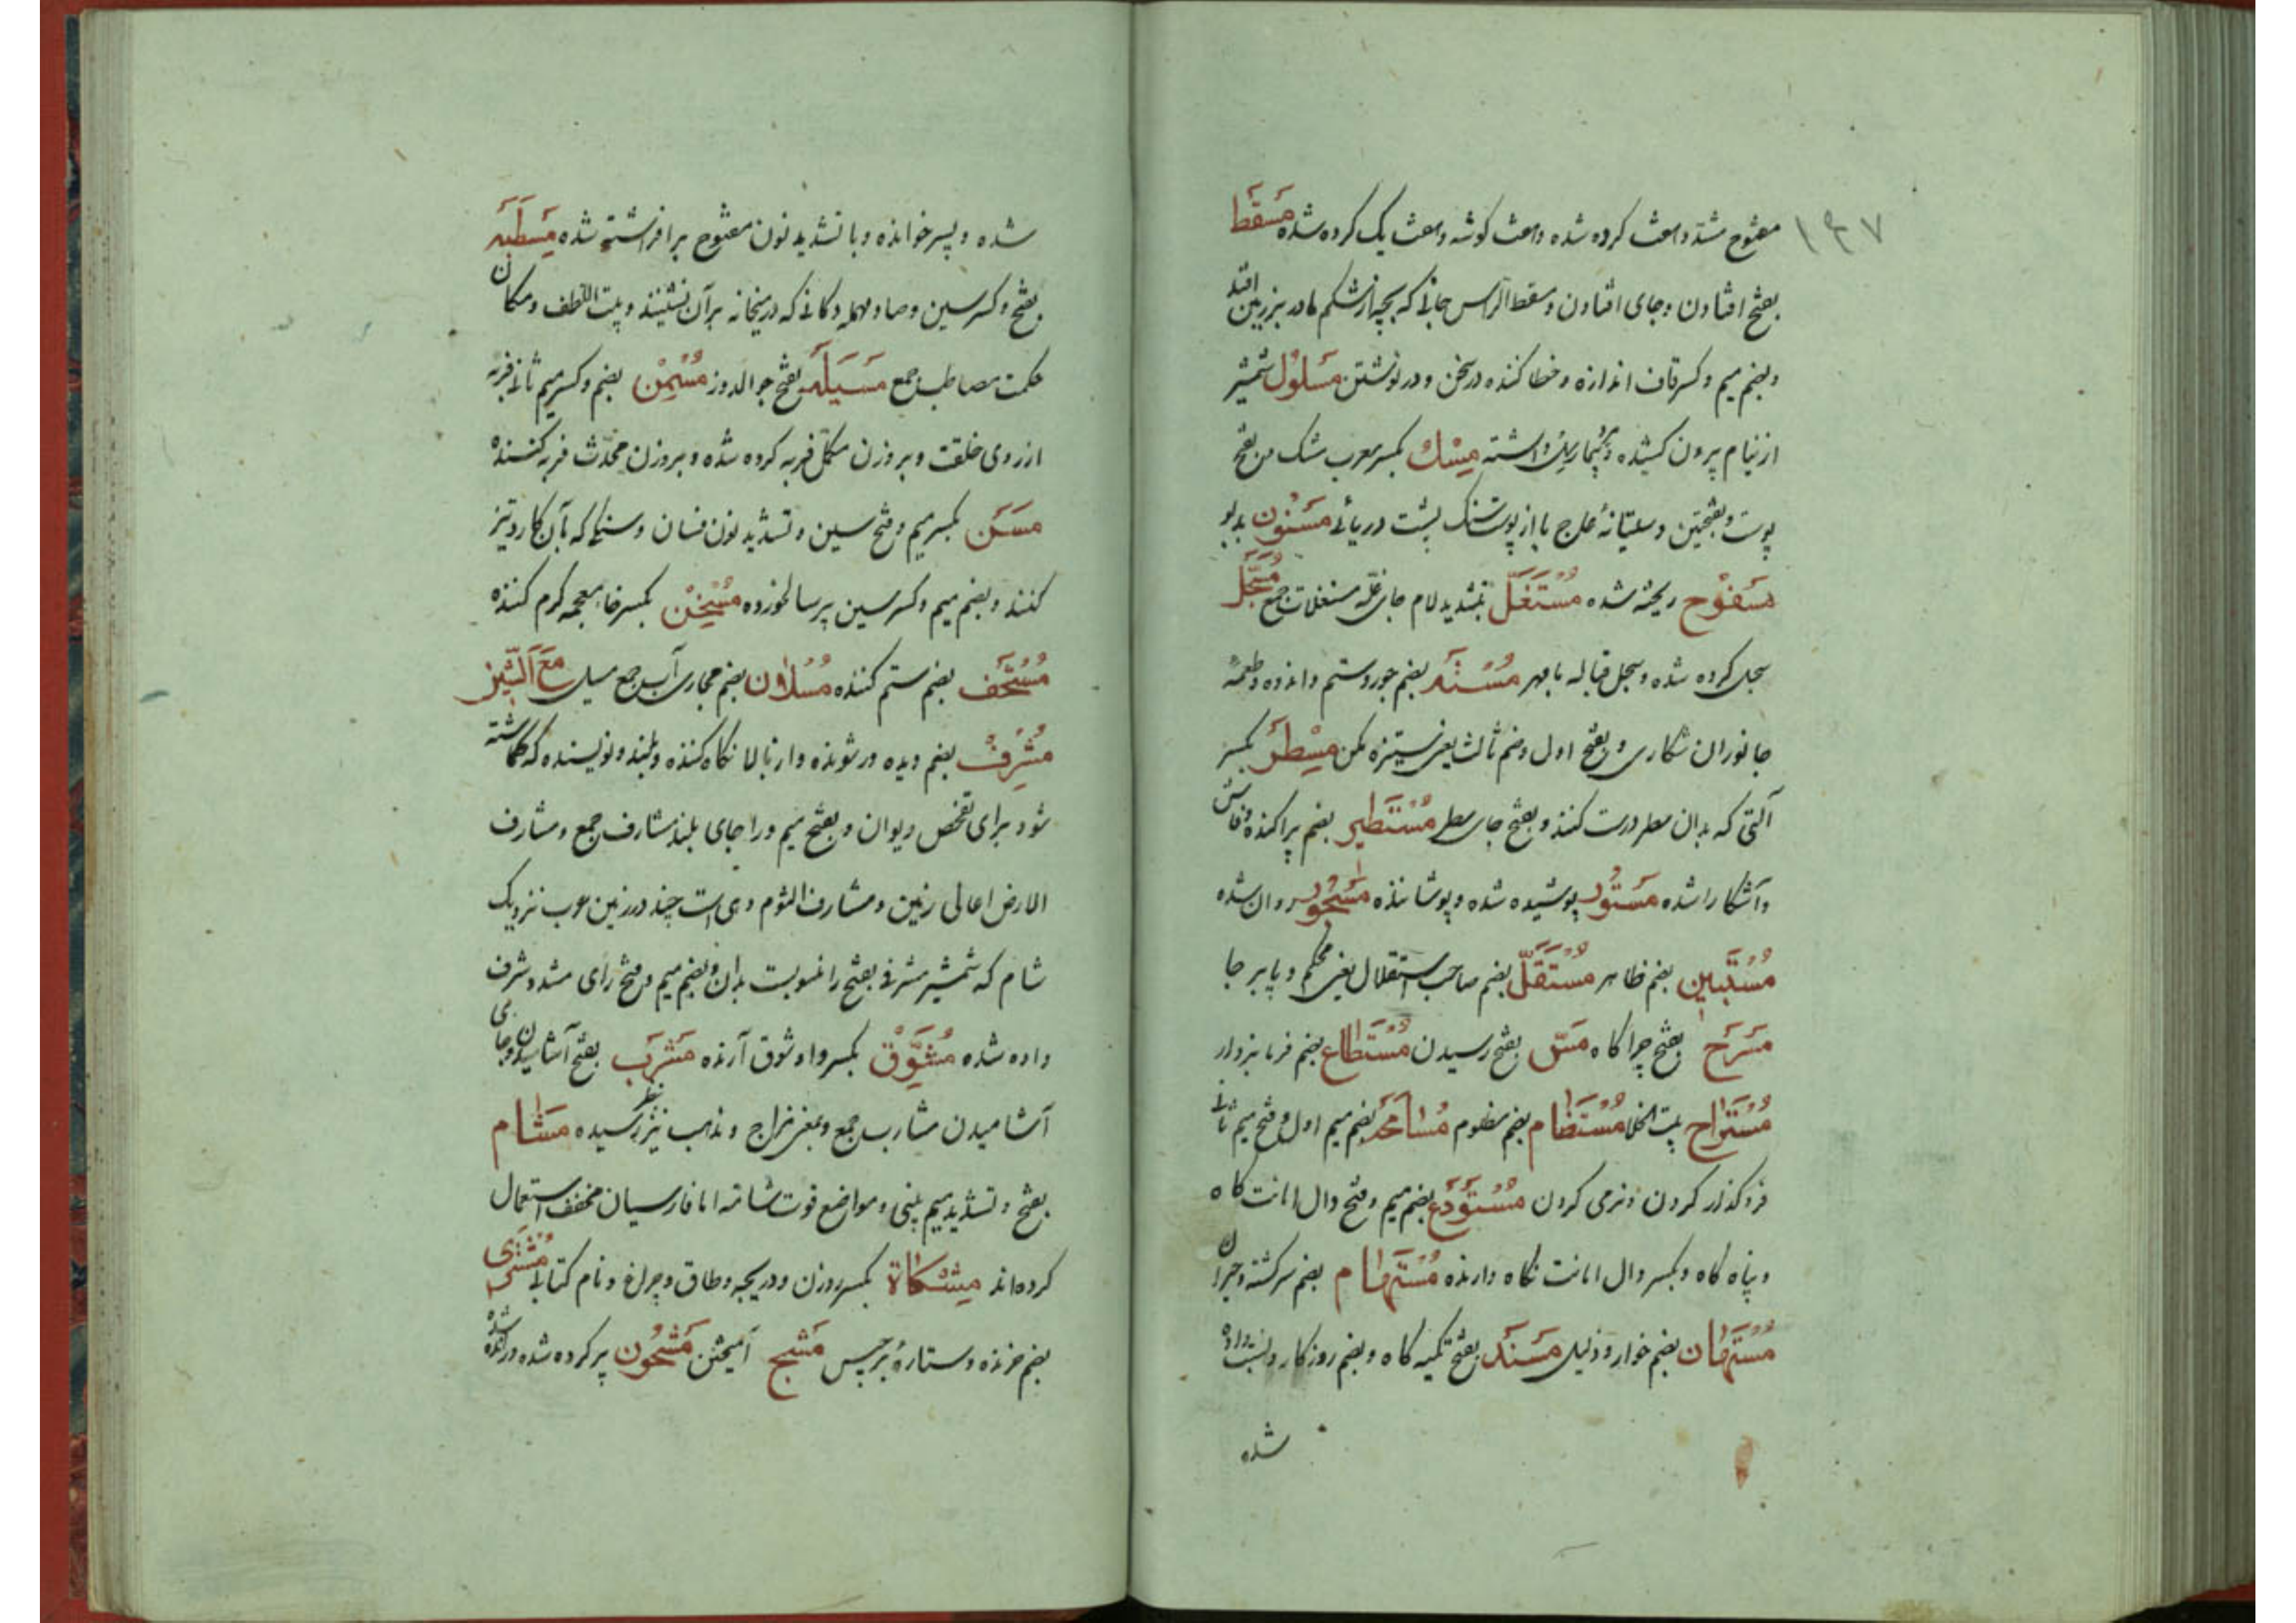 ۱۴۷
مفتوح مشدد هفت کرده شده و هفت گوشه و هفت یک کرده شده مَسقَط
بفتح افتادن و جای افتادن و مسقط الرأس جائی که بچه از شکم مادر بزمین افتد
و بضم میم و کسر قاف اندازه و خطا کننده در سخن و در نوشتن مَسلُول شمشیر
از نیام بیرون کشیده و بیماری سل داشته مِسْك بکسر معرب مشک و بفتح
پوست و بفتحتین دستیانهٔ عاج یا از پوست سنگ پشت دریائی مَسنُون بدبو
مَسفُوح ریخته شده مُستَغَلّ بتشدید لام جای غله مستغلات جمع مُسَجَّل
سجل کرده شده و سجل قباله با مهر بضم جور و ستم و اندوه و طعمهٔ
جانوران شکاری و بفتح اول و ضم ثالث یعنی ستیزه مکن مِسْطَر بکسر
آلتی که بدان سطر درست کنند و بفتح جای سطر مُستَطیر بضم پراکنده و فاش
و آشکارا شده مَستُور پوشیده شده و پوشاننده مَسجُور روان شده
مُستَبین بضم ظاهر مُستَقَلّ بضم صاحب استقلال یعنی محکم و پا بر جا
مَسرَح بفتح چراکاه مَسّ بفتح رسیدن مُستَطاع بضم فرمانبردار
مُستَراح بیت الخلا مُستَضام بضم مظلوم مُسامَحَه بضم میم اول و فتح میم ثانی
فروکذار کردن و نرمی کردن مُستَودَع بضم میم و فتح دال امانت کاه
و پناه کاه و بکسر دال امانت نکاه دارنده مُستَهام بضم سرکشته و حیران
مُستَهان بضم خوار و ذلیل مَسنَد بفتح تکیه کاه و بضم روزکار و نسبت داده
شده
شده و پسر خوانده و با تشدید نون مفتوح برافراشته شده مَسطَبَه
بفتح و کسر سین و صاد مهمله دکانی که در میخانه بر آن نشینند و بیت اللطف و مکان
حکمت مصاطب جمع مَسَیلَه بفتح جوالدوز مُسْمِنْ بضم و کسر میم ثانی فربه
از روی خلقت و بر وزن مکمل فربه کرده شده و بر وزن محدث فربه کننده
مسَن بکسر میم و فتح سین و تشدید نون فسان و سنکی که بآن کارد تیز
کنند و بضم میم و کسر سین پیر سالخورده مُسْخِنْ بکسر خاء معجمه کرم کننده
بضم ستم کننده مُسلان بضم مجاری آب جمع مسیل مَعَ الشّین
مُشْرِفْ بضم دیده ور شونده و از بالا نکاه کننده و بلند و نویسنده که کماشته
شود برای تفحص دیوان و بفتح میم و را جای بلند مشارف جمع و مشارف
الارض اعالی زمین و مشارف الشوم دهی است چند در زمین عرب نزدیک
شام که شمشیر مشرفی بفتح را منسوبست بدان و بضم میم و فتح رای مشدد شرف
داده شده مُشَوِّقْ بکسر واو شوق آرنده مَشرَب بفتح آشامیدن و جای
آشامیدن مشارب جمع و بمعنی مزاج و مذهب نیز بنظر رسیده مَشام
بفتح و تشدید میم بینی و مواضع قوت شامه اما فارسیان مخفف استعمال
کرده‌اند مِشْکاة بکسر روزن و دریچه و طاق و چراغ و نام کتابی مُشتَری
بضم خرنده و ستارهٔ برجیس مَشْج آمیختن مَشحُون پر کرده شده و رانده شده